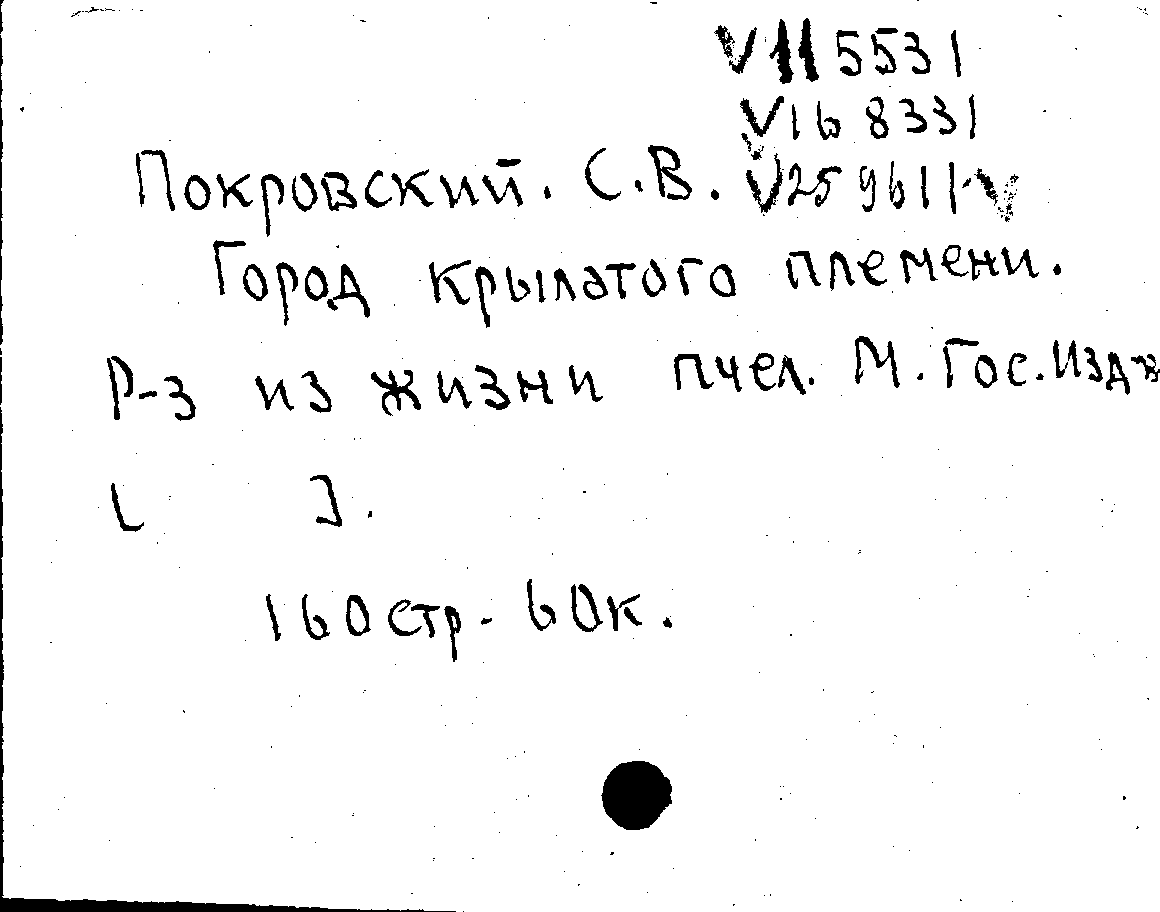 V 11 5531
V 16 8331
Покровский. С.В. V 25 9611 V
Город крылатого племени.
Р-з из жизни пчел. М. Гос. Изд-
[ ].
160 стр - 60 к.